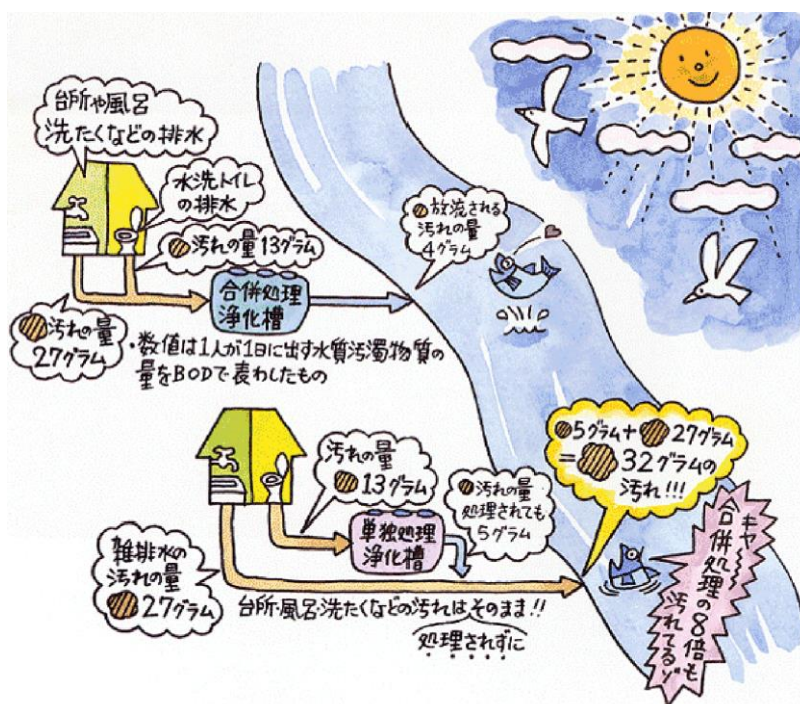 台所や風呂
洗たくなどの排水
水洗トイレ
の排水
汚れの量13グラム
合併処理
浄化槽
放流される
汚れの量
4グラム
汚れの量
27グラム
・数値は1人が1日に出す水質汚濁物質の
量をBODで表わしたもの
汚れの量
13グラム
単独処理
浄化槽
汚れの量
処理されても
5グラム
5グラム+27グラム
=32グラムの
汚れ!!!
雑排水の
汚れの量
27グラム
台所・風呂・洗たくなどの汚れはそのまま!!
処理されずに
キャー
合併処理の8倍も
汚れてるゾ